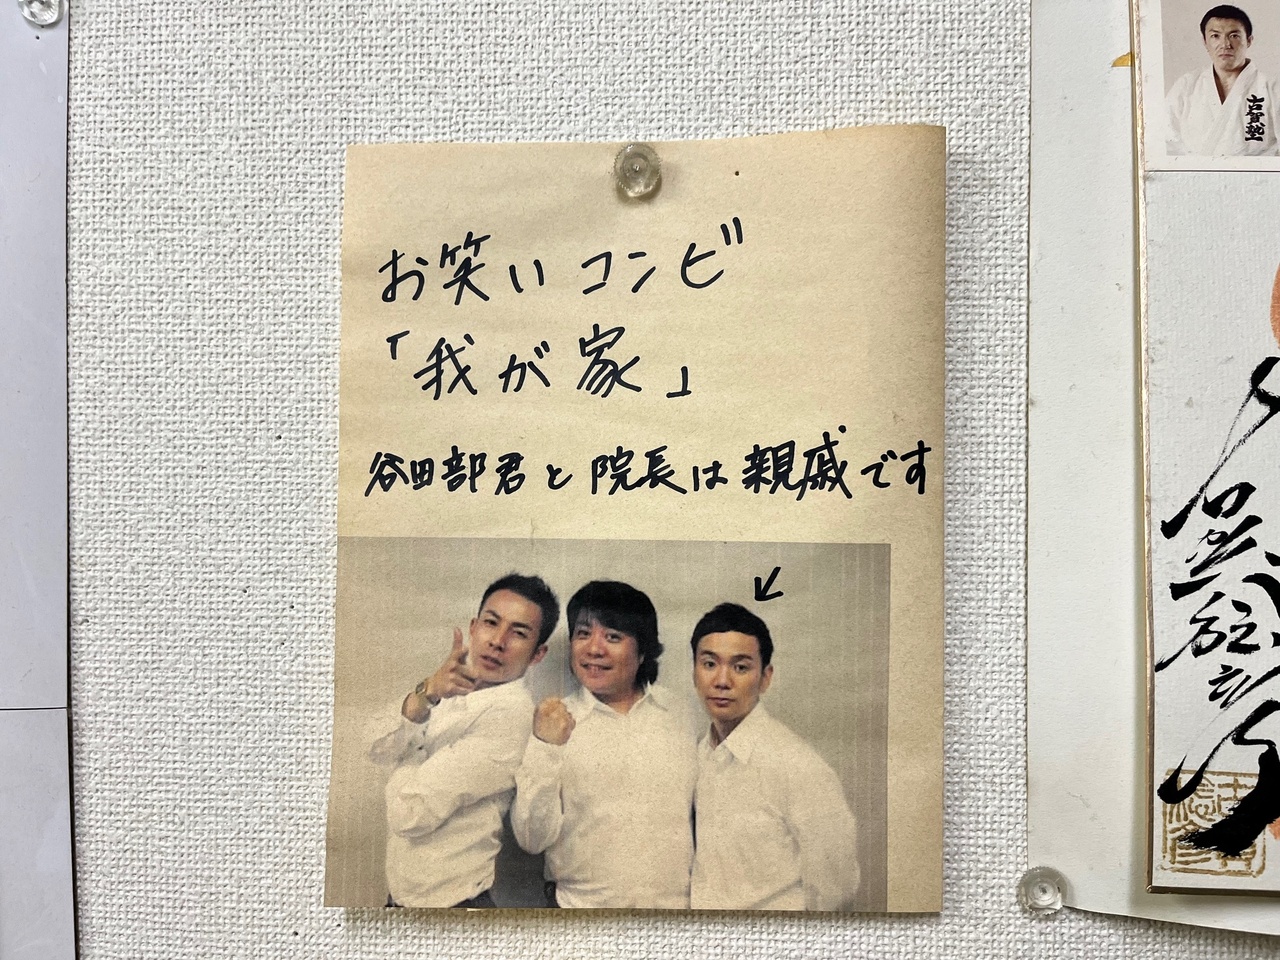 お笑いコンビ
「我が家」
谷田部君と院長は親戚です
古賀塾